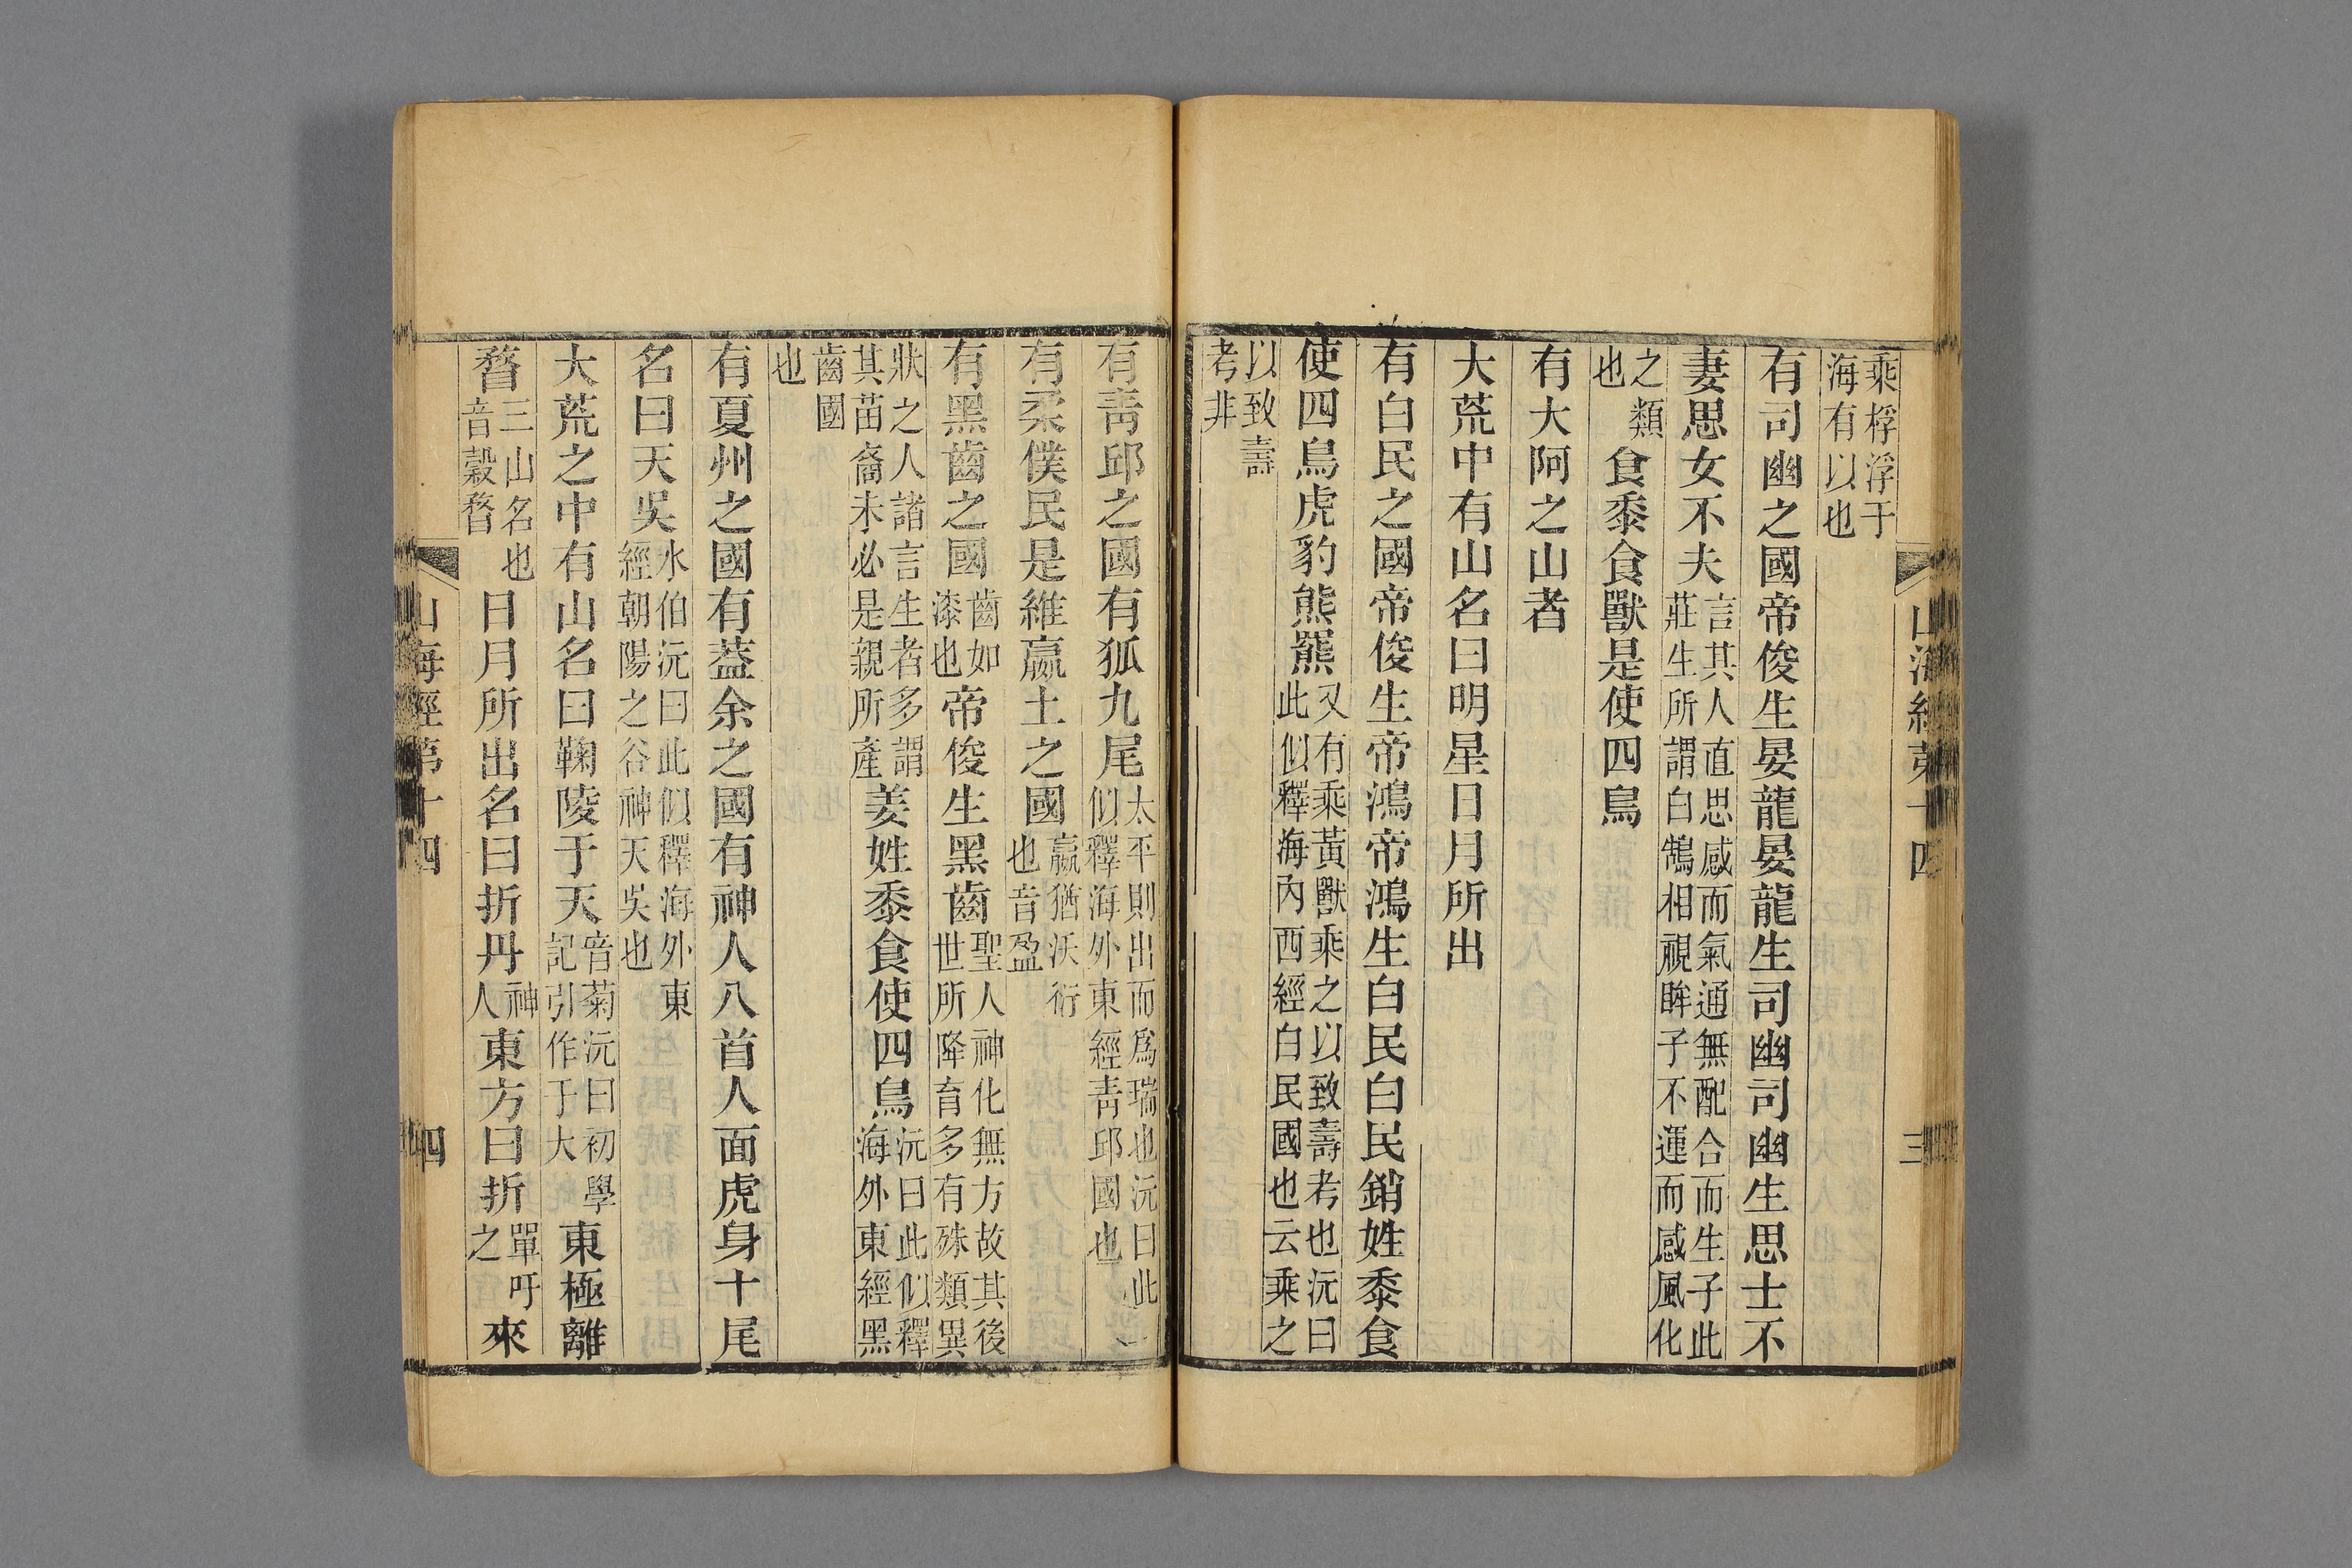 山海經第十四
三
乘桴浮于
海有以也
有司幽之國帝俊生晏龍晏龍生司幽司幽生思士不
妻思女不夫言其人直思感而氣通無配合而生子此
莊生所謂白鵠相視眸子不運而感風化
之類
也食黍食獸是使四鳥
有大阿之山者
大荒中有山名曰明星日月所出
有白民之國帝俊生帝鴻帝鴻生白民白民銷姓黍食
使四鳥虎豹熊羆又有乘黃獸乘之以致壽考也沅曰
此似釋海內西經白民國也云乘之
以致壽
考非
有青邱之國有狐九尾太平則出而爲瑞也沅曰此
似釋海外東經青邱國也
有柔僕民是維嬴土之國嬴猶沃衍
也音盈
有黑齒之國齒如
漆也帝俊生黑齒聖人神化無方故其後
世所降育多有殊類異
狀之人諸言生者多謂
其苗裔未必是親所產姜姓黍食使四鳥沅曰此似釋
海外東經黑
齒國
也
有夏州之國有葢余之國有神人八首人面虎身十尾
名曰天吳水伯沅曰此似釋海外東
經朝陽之谷神天吳也
大荒之中有山名曰鞠陵于天音菊沅曰初學
記引作于大東極離
瞀三山名也
音穀瞀日月所出名曰折丹神
人東方曰折單吁
之來
山海經第十四
四